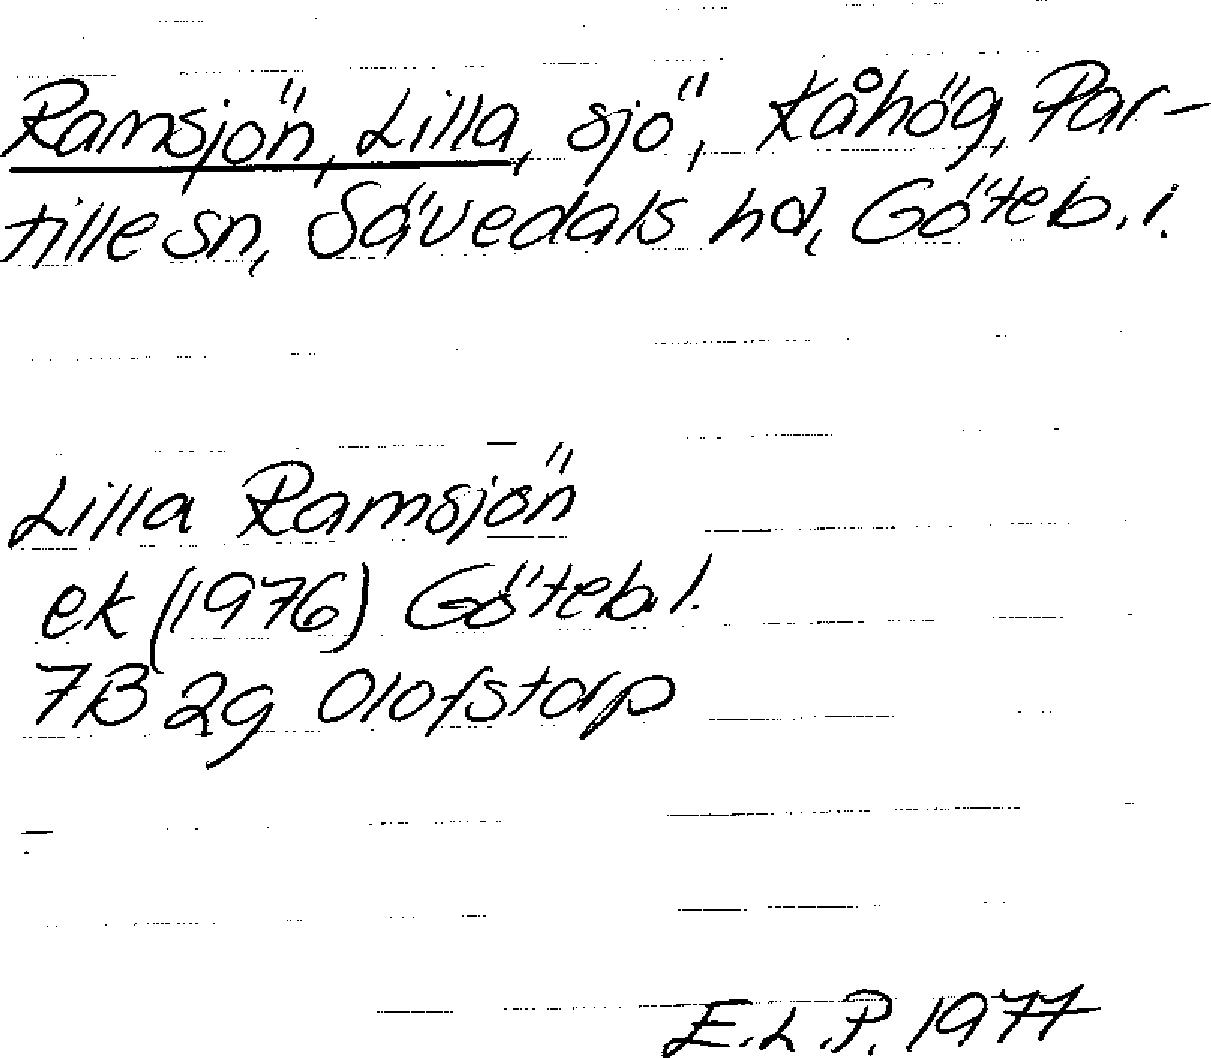 Ramsjön, Lilla, sjö, Kåhög, Par-
tille sn, Sävedals hd, Göteb. l.
Lilla Ramsjön
ek (1976) Göteb. l.
7B 2g Olofstorp
E.L.P. 1977